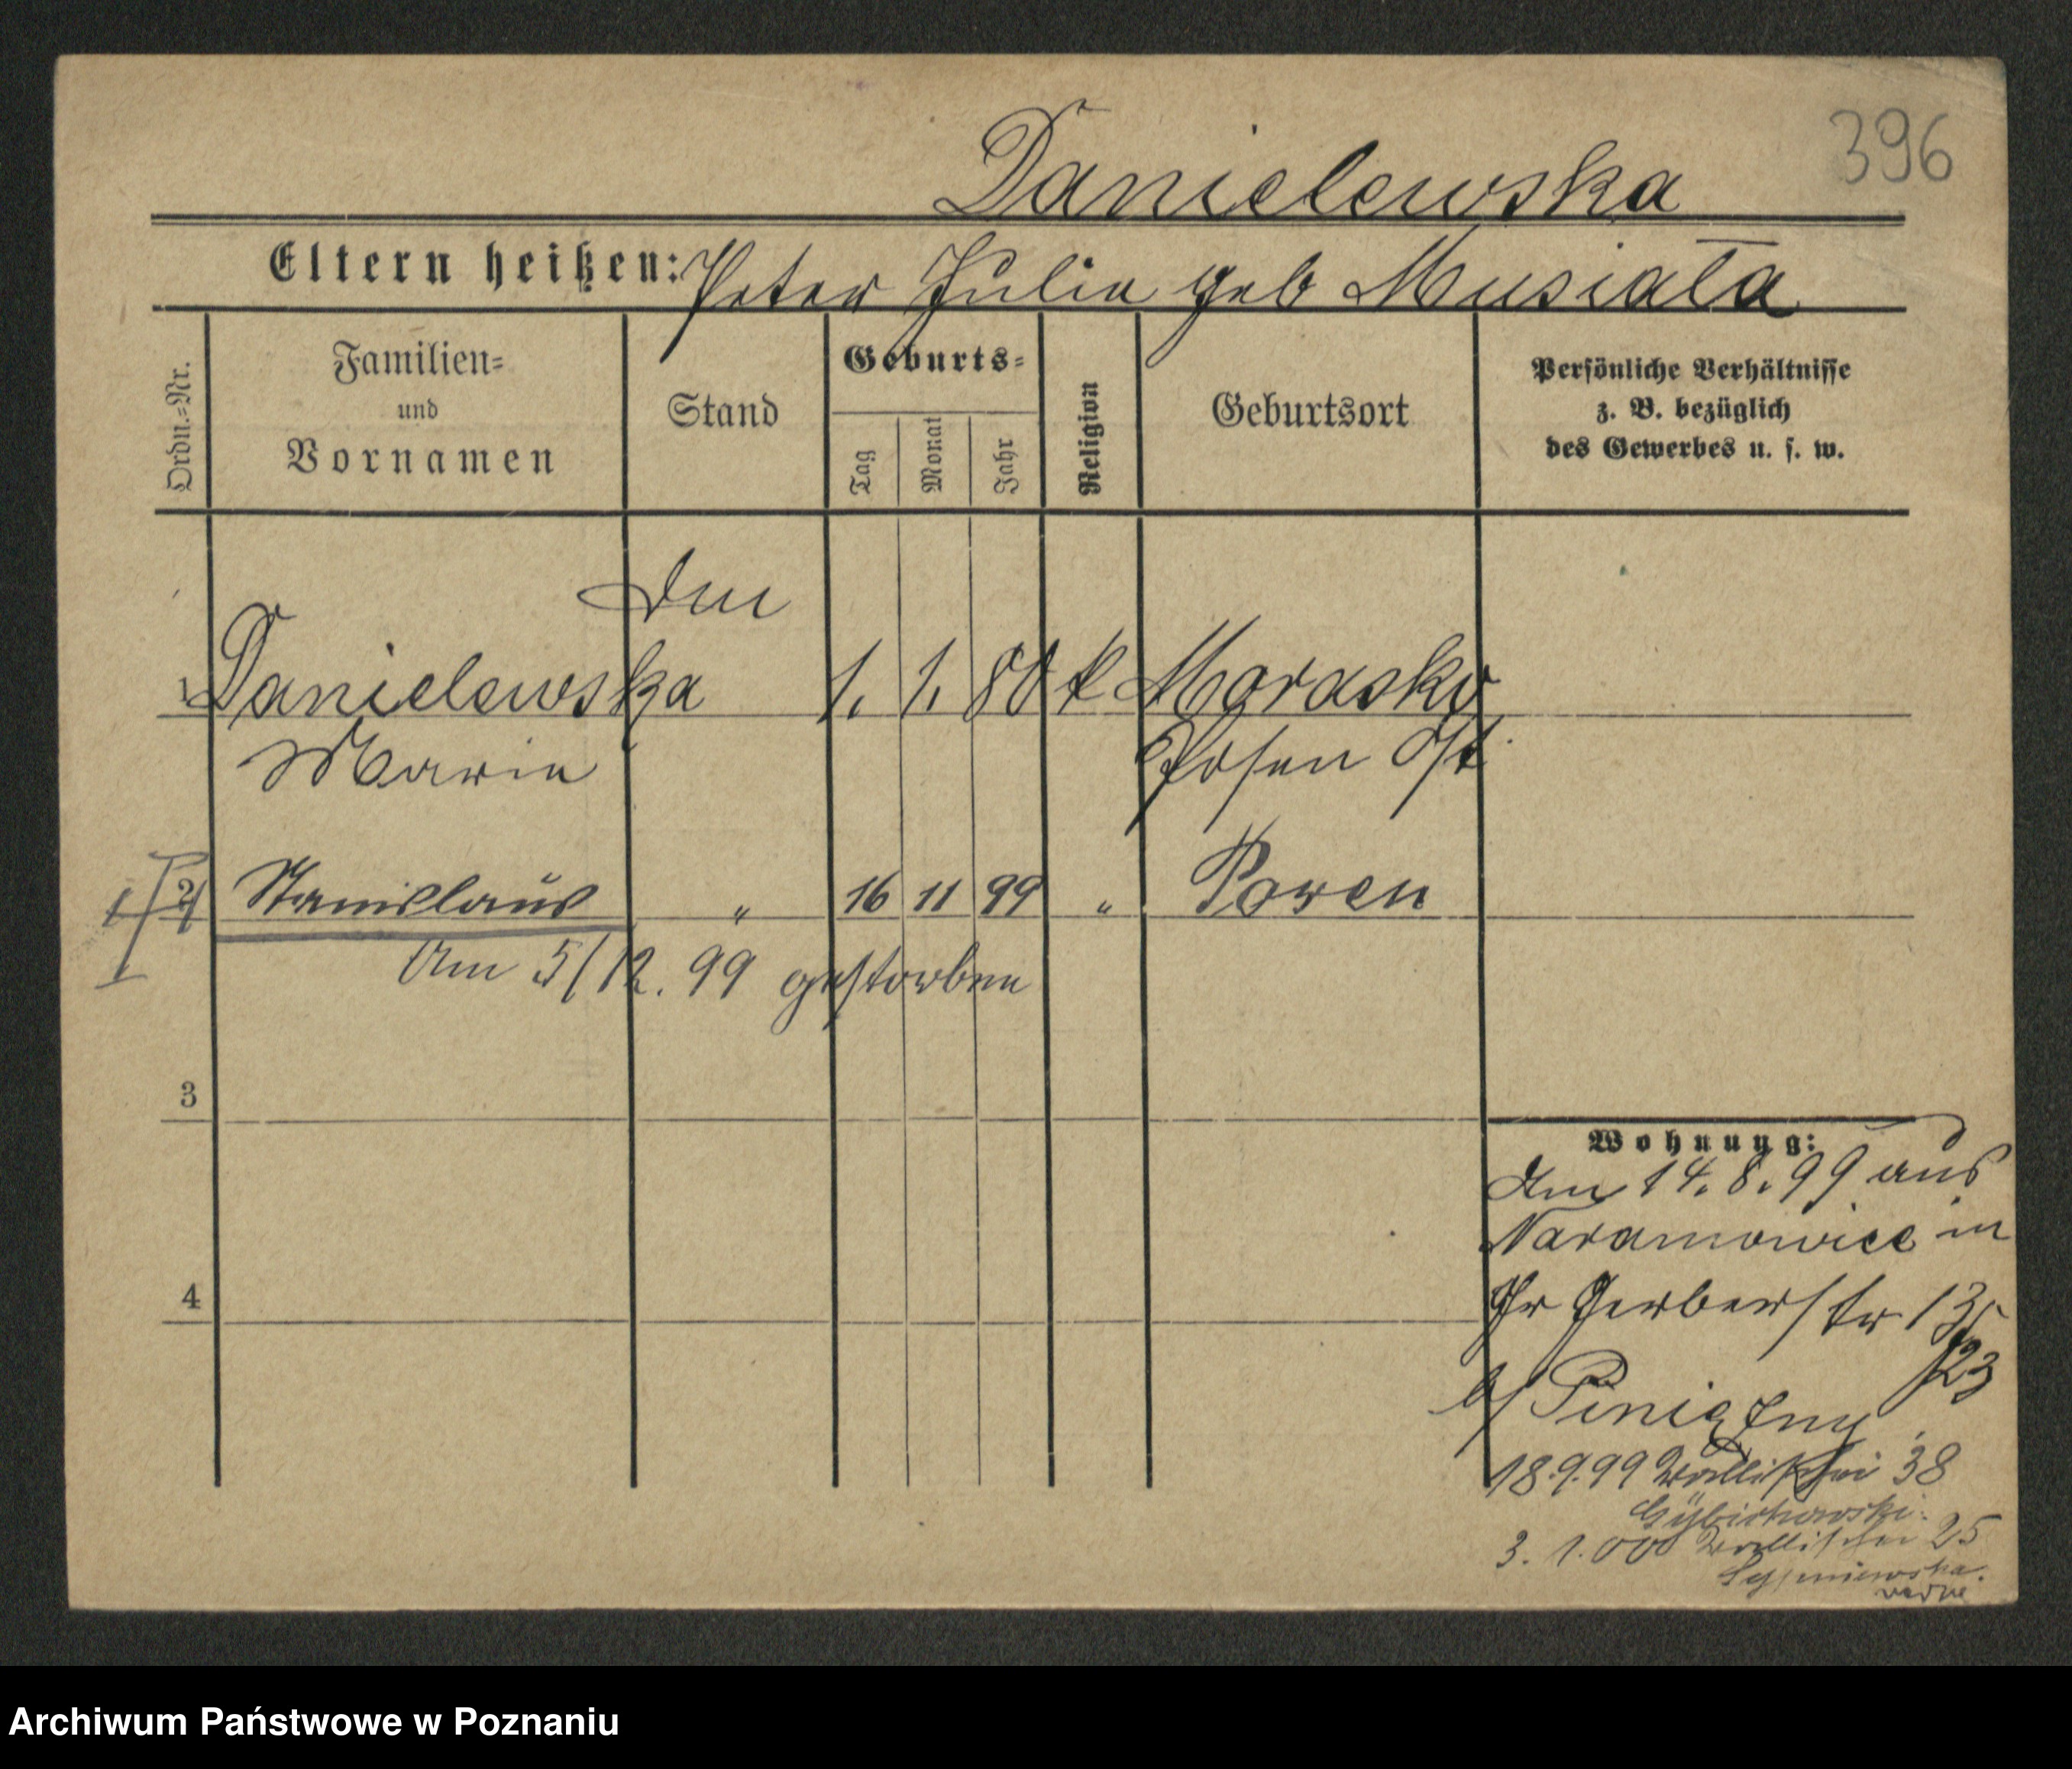 396
Danielewska
Eltern heißen: Peter Julia geb Musiała
Ordn.-Nr.
Familien-
und
Vornamen
Stand
Geburts-
Tag
Monat
Jahr
Religion
Geburtsort
Persönliche Verhältnisse
z. B. bezüglich
des Gewerbes u. s. w.
1 Danielewska 1. 1. 80 k Morasko
Maria Posen Ost
2 Stanislaus " 16 11 99 " Posen
Am 5/12. 99 gestorben
3
4
Wohnung:
Am 14. 8. 99 aus
Naramowice in
Gr Gerberstr 13
23
b/
18.9.99 Wallischei 38
3. 1. 00 Wallischei 25
Archiwum Państwowe w Poznaniu